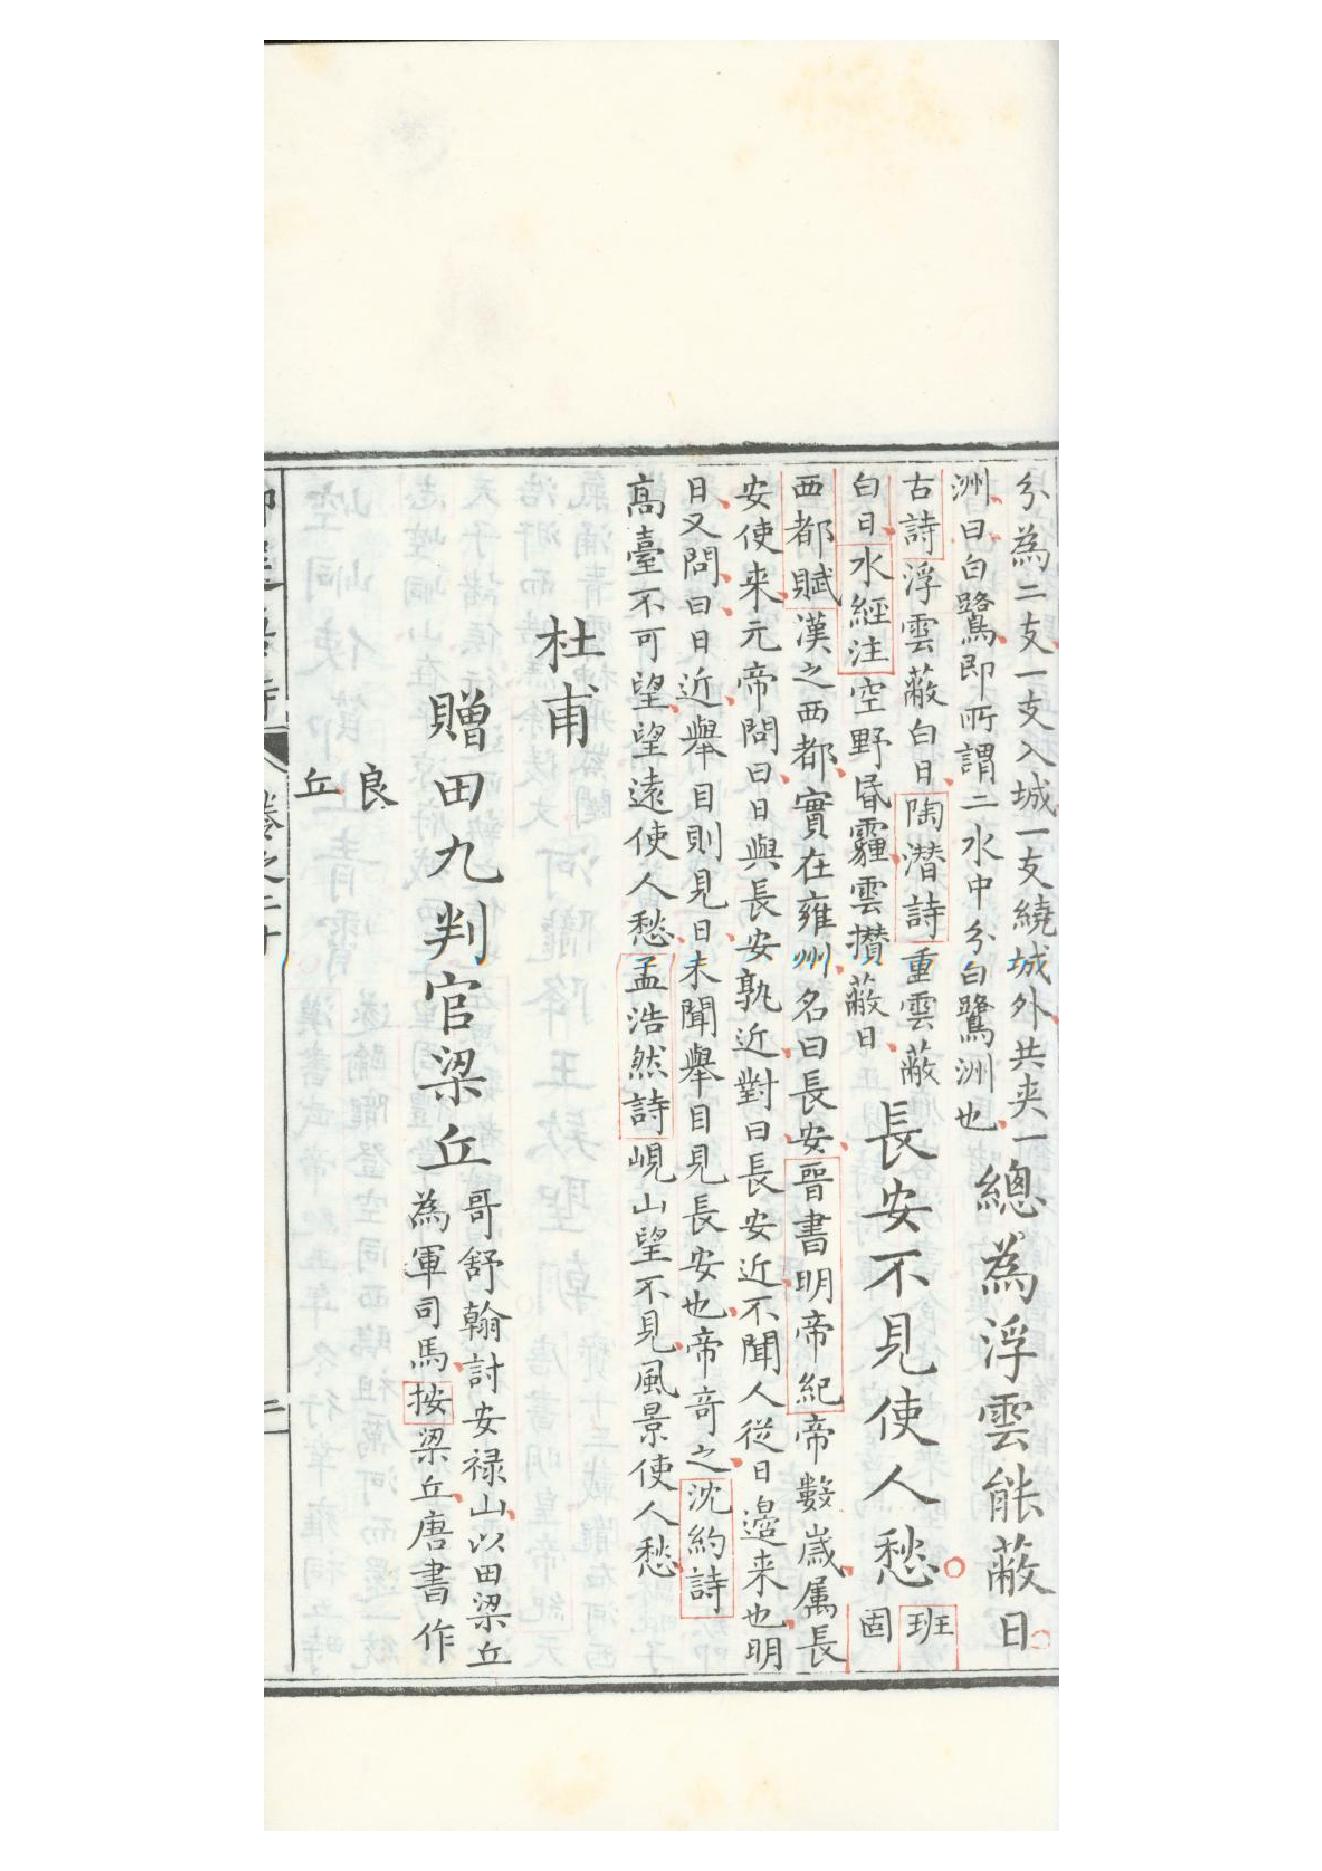 分為二支一支入城一支繞城外共夾一
洲曰白鷺即所謂二水中分白鷺洲也
總為浮雲能蔽日
古詩浮雲蔽白日陶潛詩重雲蔽
白日水經注空野昬霾雲攅蔽日
長安不見使人愁
班
固
西都賦漢之西都實在雍州名曰長安晉書明帝紀帝數歲属長
安使来元帝問曰日與長安孰近對曰長安近不聞人從日邊来也明
日又問曰日近舉目則見日未聞舉目見長安也帝竒之沈約詩
髙臺不可望望遠使人愁孟浩然詩峴山望不見風景使人愁
杜甫
贈田九判官梁丘
哥舒翰討安禄山以田梁丘
為軍司馬按梁丘唐書作
良
丘
卷之二十
二